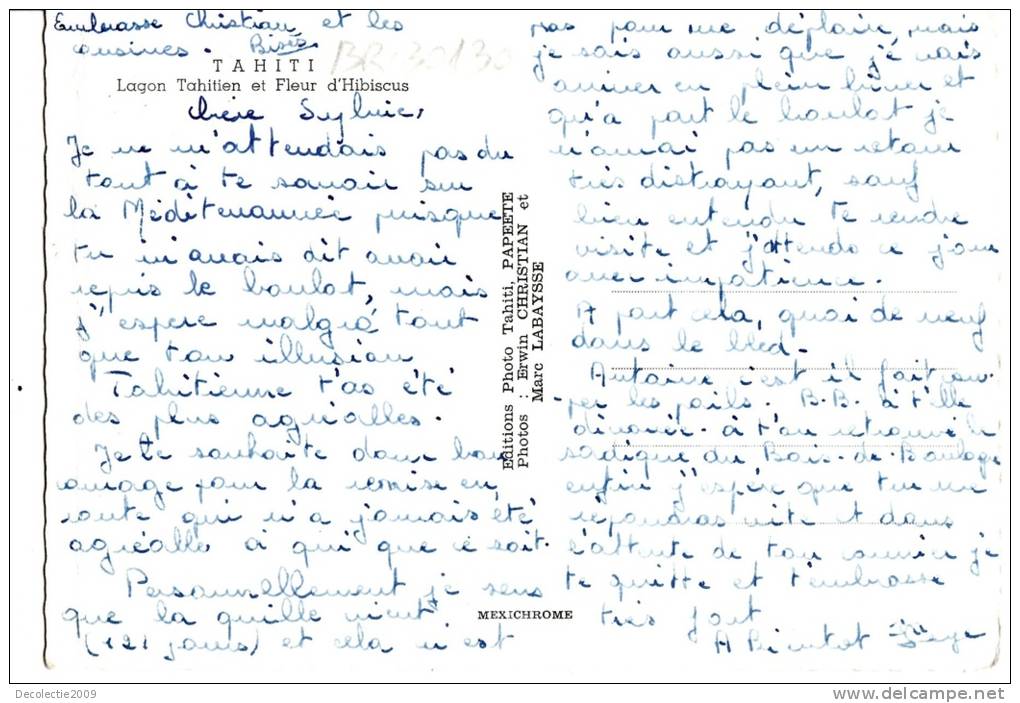 Embrasse Christian et les
cousines. Bises
BR 30130
TAHITI
Lagon Tahitien et Fleur d'Hibiscus
Chère Sylvie,
Je ne m'attendais pas du
tout à te savoir sur
la Méditerannée puisque
tu m'avais dit avoir
repris le boulot, mais
j'espère malgré tout
que ton illusion
Tahitienne t'as été
des plus agréables.
Je te souhaite donc bon
courage pour la remise en
route qui n'a jamais été
agréable à qui que ce soit.
Personnellement je sens
que la quille vient
(121 jours) et cela n'est
pas pour me déplaire, mais
je sais aussi que je vais
arriver en plein hiver et
qu'à part le boulot je
n'aurai pas un retour
très distrayant, sauf
bien entendu te rendre
visite et j'attends ce jour
avec impatience.
A part cela, quoi de neuf
dans le bled.
Antoine c'est il fait cou-
per les poils. B.B. à t'elle
divorcé. à t'on retrouvé le
sadique du Bois-de-Boulogne
enfin j'espère que tu me
répondras vite et dans
l'attente de ton courrier je
te quitte et t'embrasse
très fort
A Bientot Serge
Editions Photo Tahiti, PAPEETE
Photos : Erwin CHRISTIAN et
Marc LABAYSSE
MEXICHROME
Decolectie2009
delcampe.net